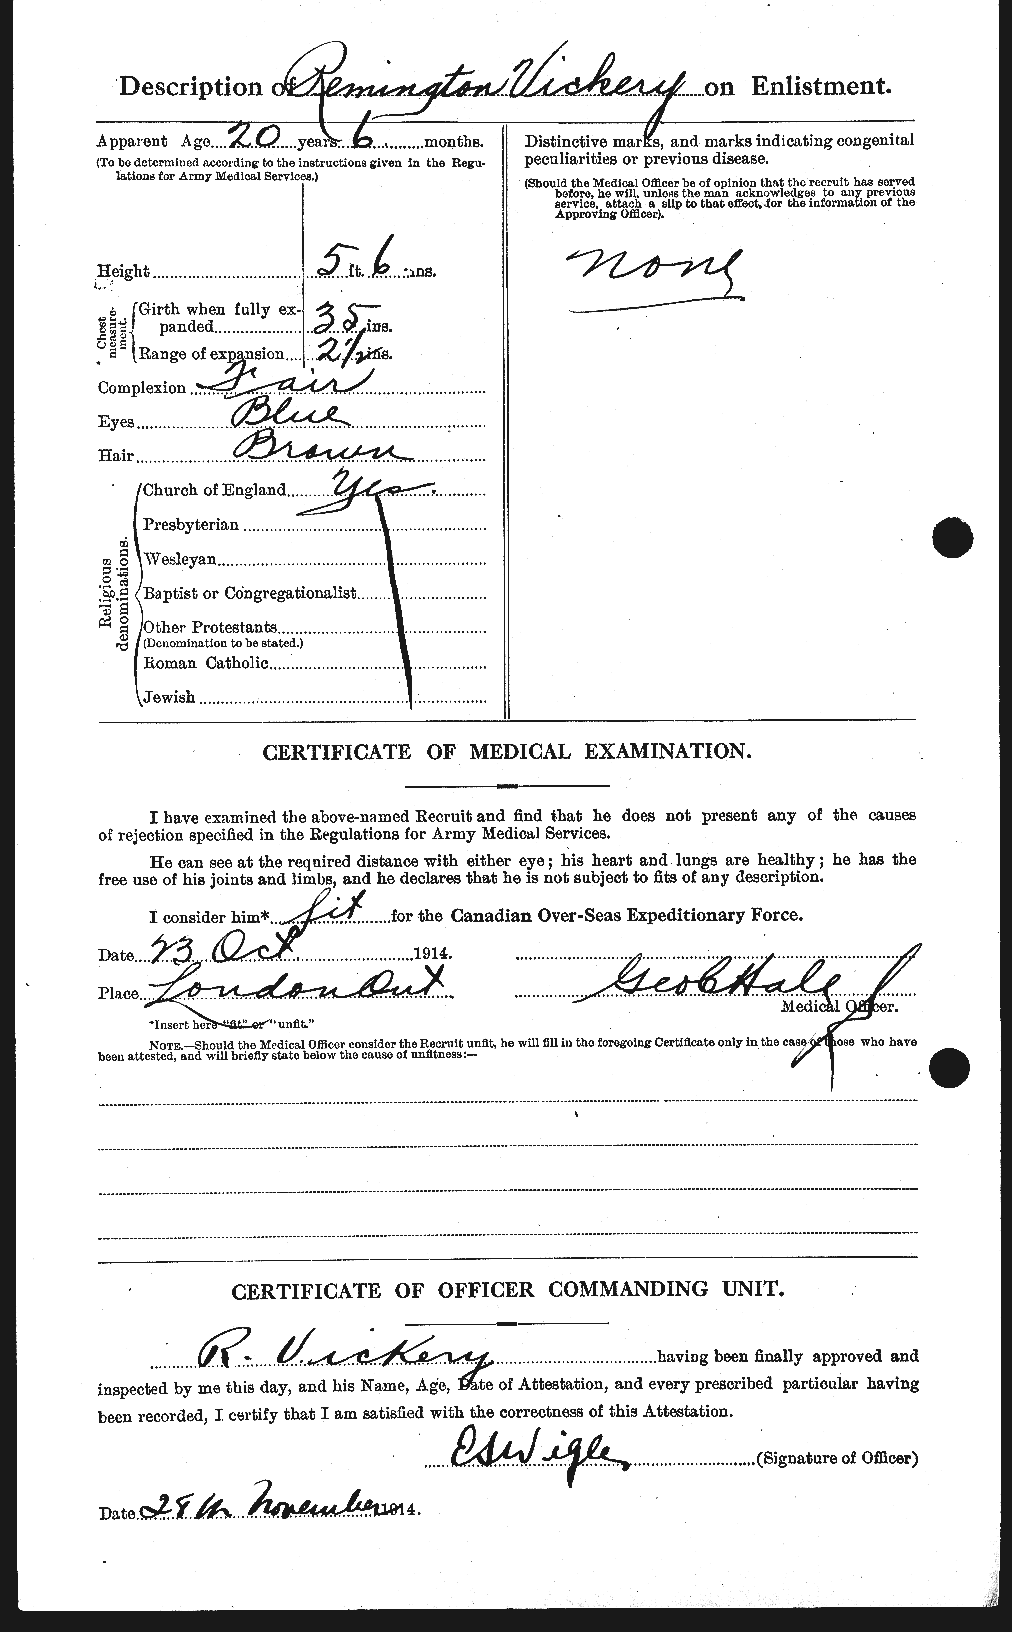 Description of Remington Vickery on Enlistment.
Apparent Age 20 years 6 months.
(To be determined according to the instructions given in the Regu-
lations for Army Medical Services.)
Height 5 ft. 6 ins.
Chest measure-ment.
Girth when fully ex-
panded 35 ins.
Range of expansion 2½ ins.
Complexion Fair
Eyes Blue
Hair Brown
Religious denominations.
Church of England Yes.
Presbyterian
Wesleyan
Baptist or Congregationalist
Other Protestants
(Denomination to be stated.)
Roman Catholic
Jewish
Distinctive marks, and marks indicating congenital
peculiarities or previous disease.
(Should the Medical Officer be of opinion that the recruit has served
before, he will, unless the man acknowledges to any previous
service, attach a slip to that effect, for the information of the
Approving Officer).
None
CERTIFICATE OF MEDICAL EXAMINATION.
I have examined the above-named Recruit and find that he does not present any of the causes
of rejection specified in the Regulations for Army Medical Services.
He can see at the required distance with either eye; his heart and lungs are healthy; he has the
free use of his joints and limbs, and he declares that he is not subject to fits of any description.
I consider him* fit for the Canadian Over-Seas Expeditionary Force.
Date 23 Oct 1914.
Place London Ont
Geo C Hale
Medical Officer.
*Insert here "fit" or "unfit."
NOTE.—Should the Medical Officer consider the Recruit unfit, he will fill in the foregoing Certificate only in the case of those who have
been attested, and will briefly state below the cause of unfitness:—
CERTIFICATE OF OFFICER COMMANDING UNIT.
R. Vickery having been finally approved and
inspected by me this day, and his Name, Age, Date of Attestation, and every prescribed particular having
been recorded, I certify that I am satisfied with the correctness of this Attestation.
ESWigle (Signature of Officer)
Date 28th November 1914.